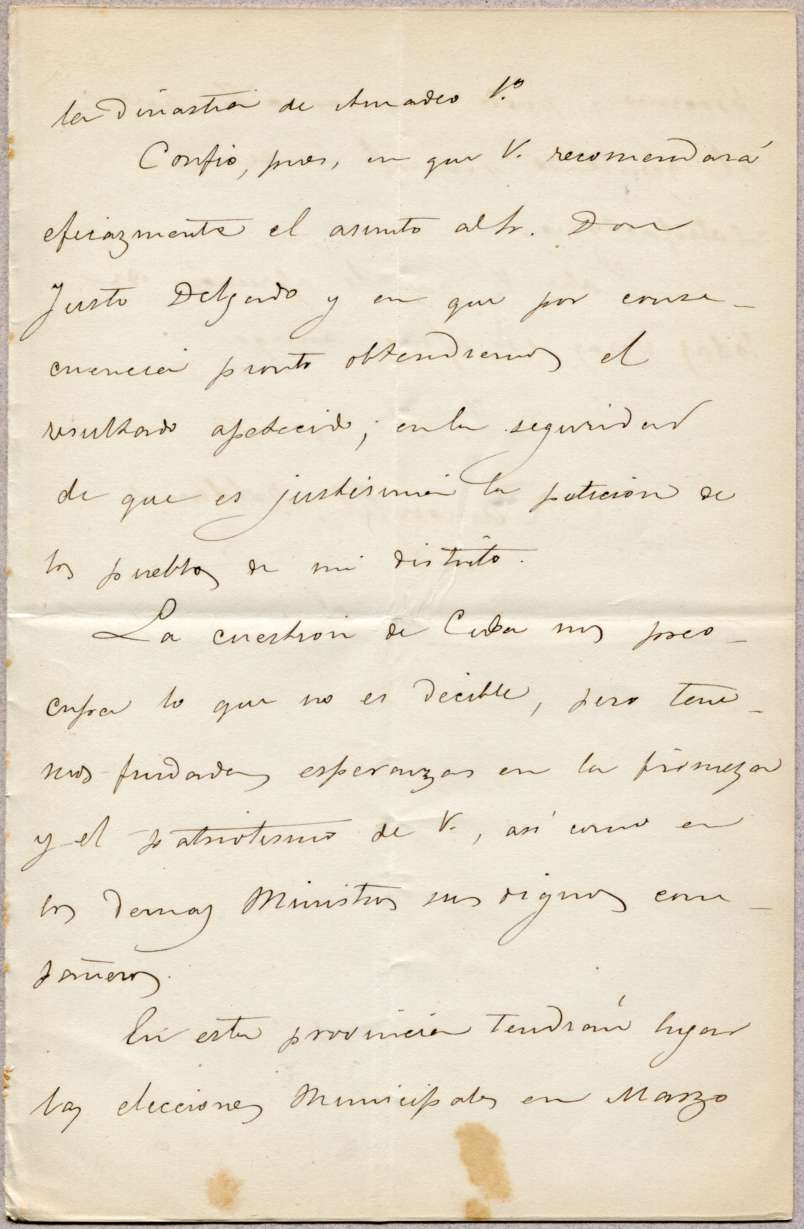 la dinastia de Amadeo 1.º
Confio, pues, en que V. recomendará
eficazmente el asunto al Sr. Don
Justo Delgado y en que por conse-
cuencia pronto obtendremos el
resultado apetecido; en la seguridad
de que es justisima la peticion de
los pueblos de mi distrito.
La cuestion de Cuba nos preo-
cupa lo que no es decible, pero tene-
mos fundadas esperanzas en la firmeza
y el patriotismo de V., asi como en
los demas Ministros sus dignos com-
pañeros.
En esta provincia tendrán lugar
las elecciones Municipales en Marzo